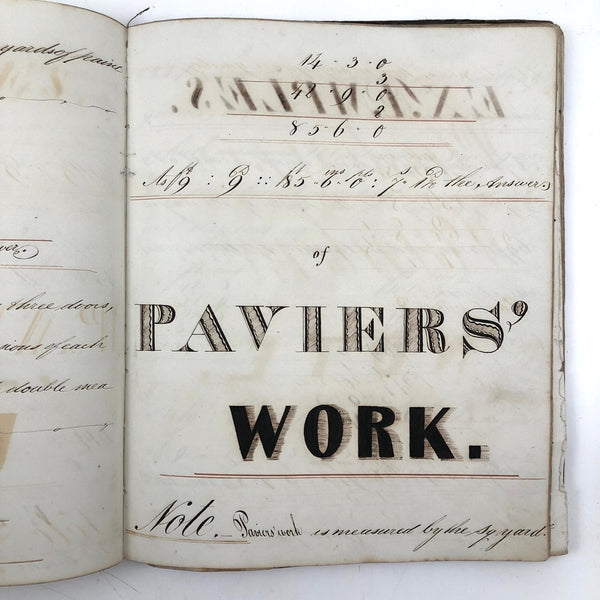 yards of paint
wer.
three doors,
nious of each
double mea
14 . 3 . 0
3
42 . 9 . 0
2
85 6 . 0
As 9 : 9 :: 85 . 6 . 0 : 7 . the Answer
of
PAVIERS'
WORK.
Note. Paviers' work is measured by the sq. yard.